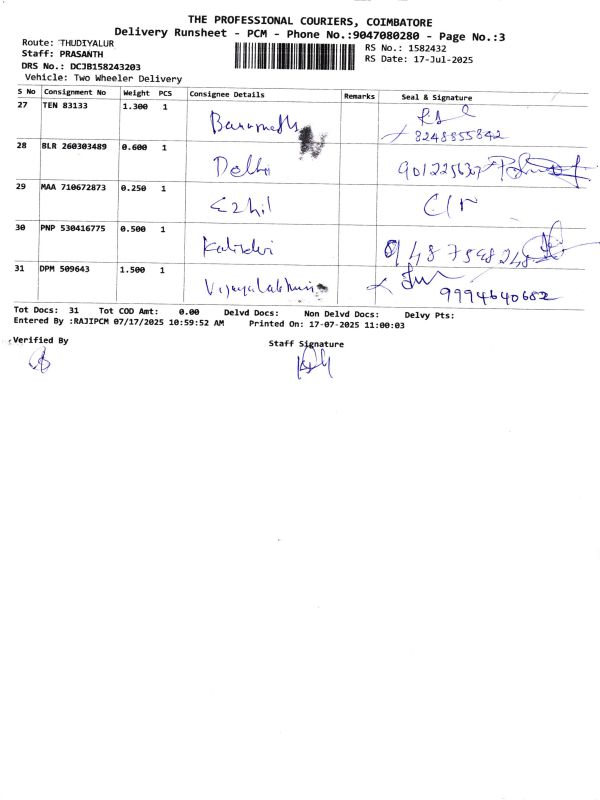 THE PROFESSIONAL COURIERS, COIMBATORE
Delivery Runsheet - PCM - Phone No.:9047080280 - Page No.:3
Route: THUDIYALUR
Staff: PRASANTH
DRS No.: DCJB158243203
Vehicle: Two Wheeler Delivery
RS No.: 1582432
RS Date: 17-Jul-2025
S No Consignment No Weight PCS Consignee Details Remarks Seal & Signature
27 TEN 83133 1.300 1
8248855842
28 BLR 260303489 0.600 1
Delhi
29 MAA 710672873 0.250 1
Ezhil
30 PNP 530416775 0.500 1
31 DPM 509643 1.500 1
Vijayalakhmi
9994640682
Tot Docs: 31 Tot COD Amt: 0.00 Delvd Docs: Non Delvd Docs: Delvy Pts:
Entered By :RAJIPCM 07/17/2025 10:59:52 AM Printed On: 17-07-2025 11:00:03
Verified By
Staff Signature